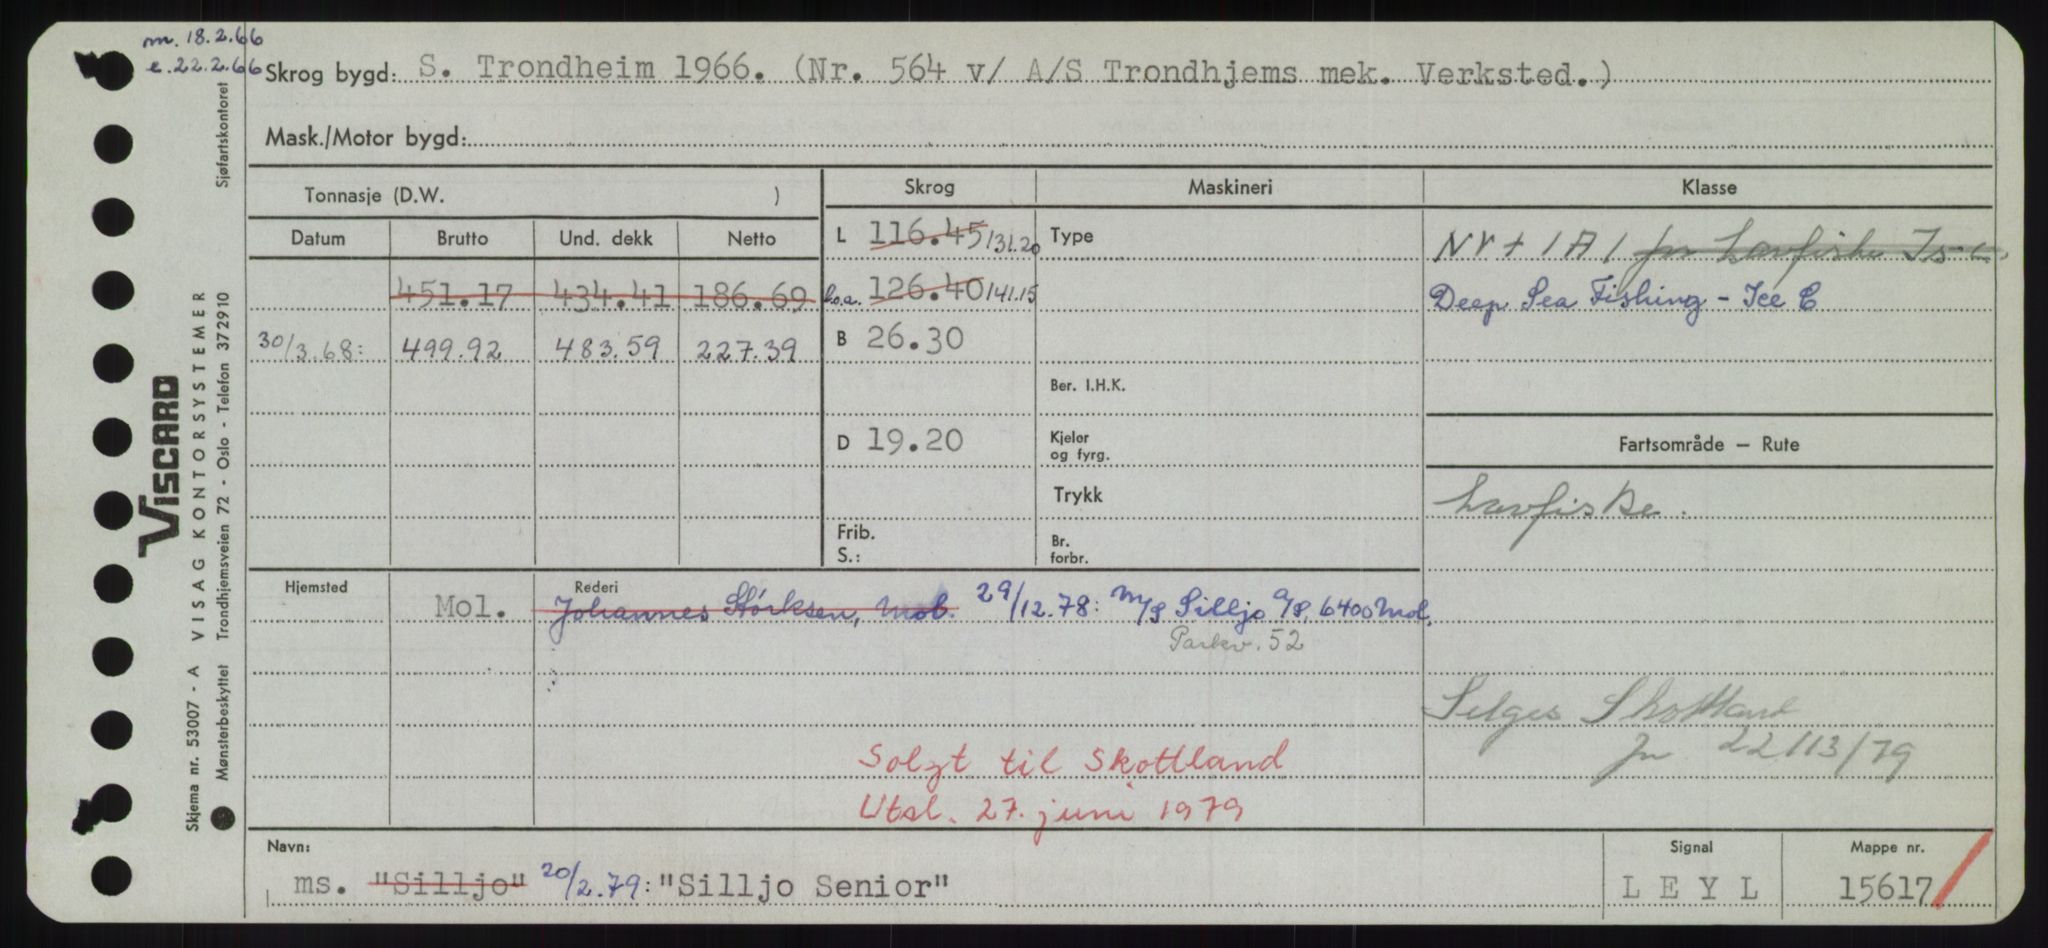 m. 18.2.66
e. 22.2.66
Skrog bygd: S. Trondheim 1966. (Nr. 564 v/ A/S Trondhjems mek. Verksted.)
Mask./Motor bygd:
Tonnasje (D.W. )
Skrog Maskineri Klasse
Datum Brutto Und. dekk Netto
L 116.45 131.20 Type
NV + 1A1 for havfiske Is C
451.17 434.41 186.69
l.o.a. 126.40 141.15
Deep Sea Fishing - Ice C
30/3.68: 499.92 483.59 227.39
B 26.30
Ber. I.H.K.
D 19.20
Kjeler og fyrg.
Fartsområde — Rute
Trykk
havfiske.
Frib. S.:
Br. forbr.
Hjemsted Mol. Rederi
Johannes Størksen, Mol. 29/12.78: M/S Silljo A/S, 6400 Mol.
Parkv. 52
Selges Skottland
22/13/79
Solgt til Skottland
Utsl. 27. juni 1979
Navn: Signal Mappe nr.
ms. "Silljo" 20/2.79: "Silljo Senior" LEYL 15617
Sjøfartskontoret
VISCARD
VISAG KONTORSYSTEMER
Trondhjemsveien 72 - Oslo - Telefon 372910
Skjema nr. 53007 - A
Mønsterbeskyttet